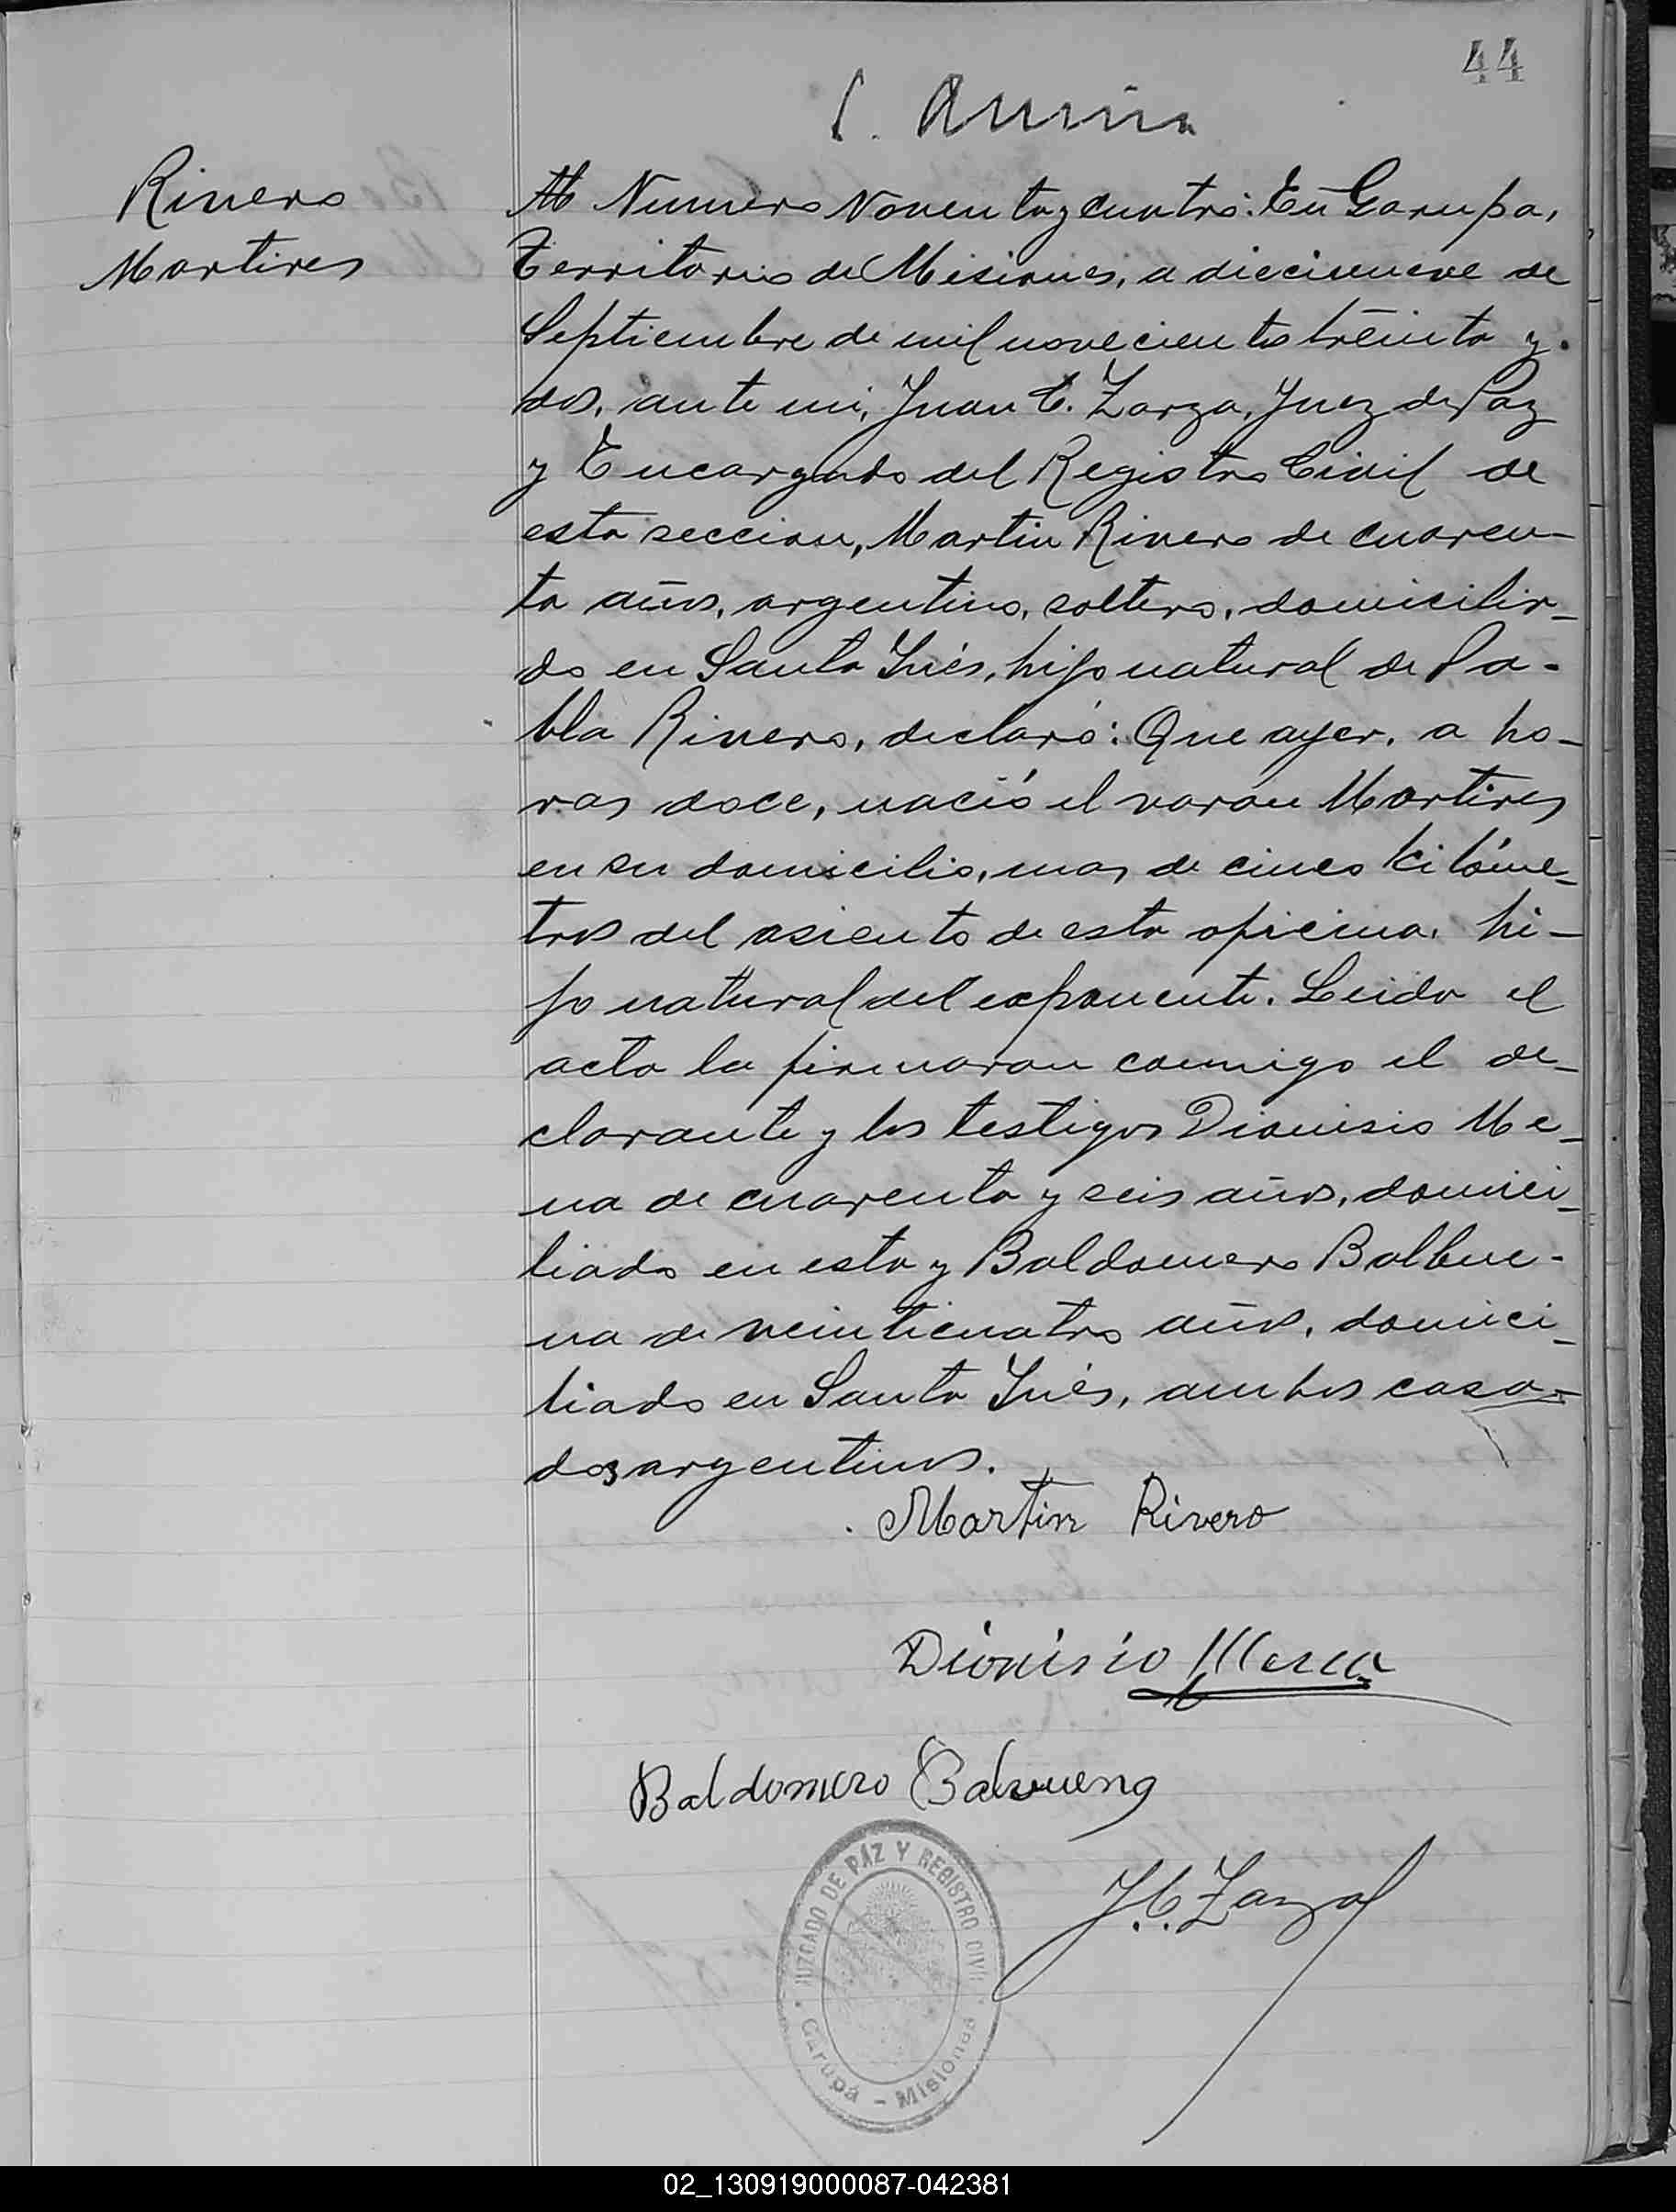 44
Rivero
Martires
Numero Noventa y cuatro: En Garupa,
Territorio de Misiones, a diecinueve de
Septiembre de mil novecientos treinta y
dos, ante mi, Juan C. Zarza, Juez de Paz
y Encargado del Registro Civil de
esta seccion, Martin Rivero de cuaren-
ta años, argentino, soltero, domicilia-
do en Santa Inés, hijo natural de Pa-
bla Rivero, declaró: Que ayer, a ho-
ras doce, nació el varon Martires
en su domicilio, mas de cinco kilóme-
tros del asiento de esta oficina, hi-
jo natural del exponente. Leida el
acta la firmaron conmigo el de-
clarante y los testigos Dionisio Me-
na de cuarenta y seis años, domici-
liado en esta y Baldomero Balbue-
na de veinticuatro años, domici-
liado en Santa Inés, ambos casa-
dos argentinos.
Martin Rivero
Dionisio Mena
Baldomero Balvuena
J.C. Zarza
JUZGADO DE PAZ Y REGISTRO CIVIL
Garupá - Misiones
02_130919000087-042381